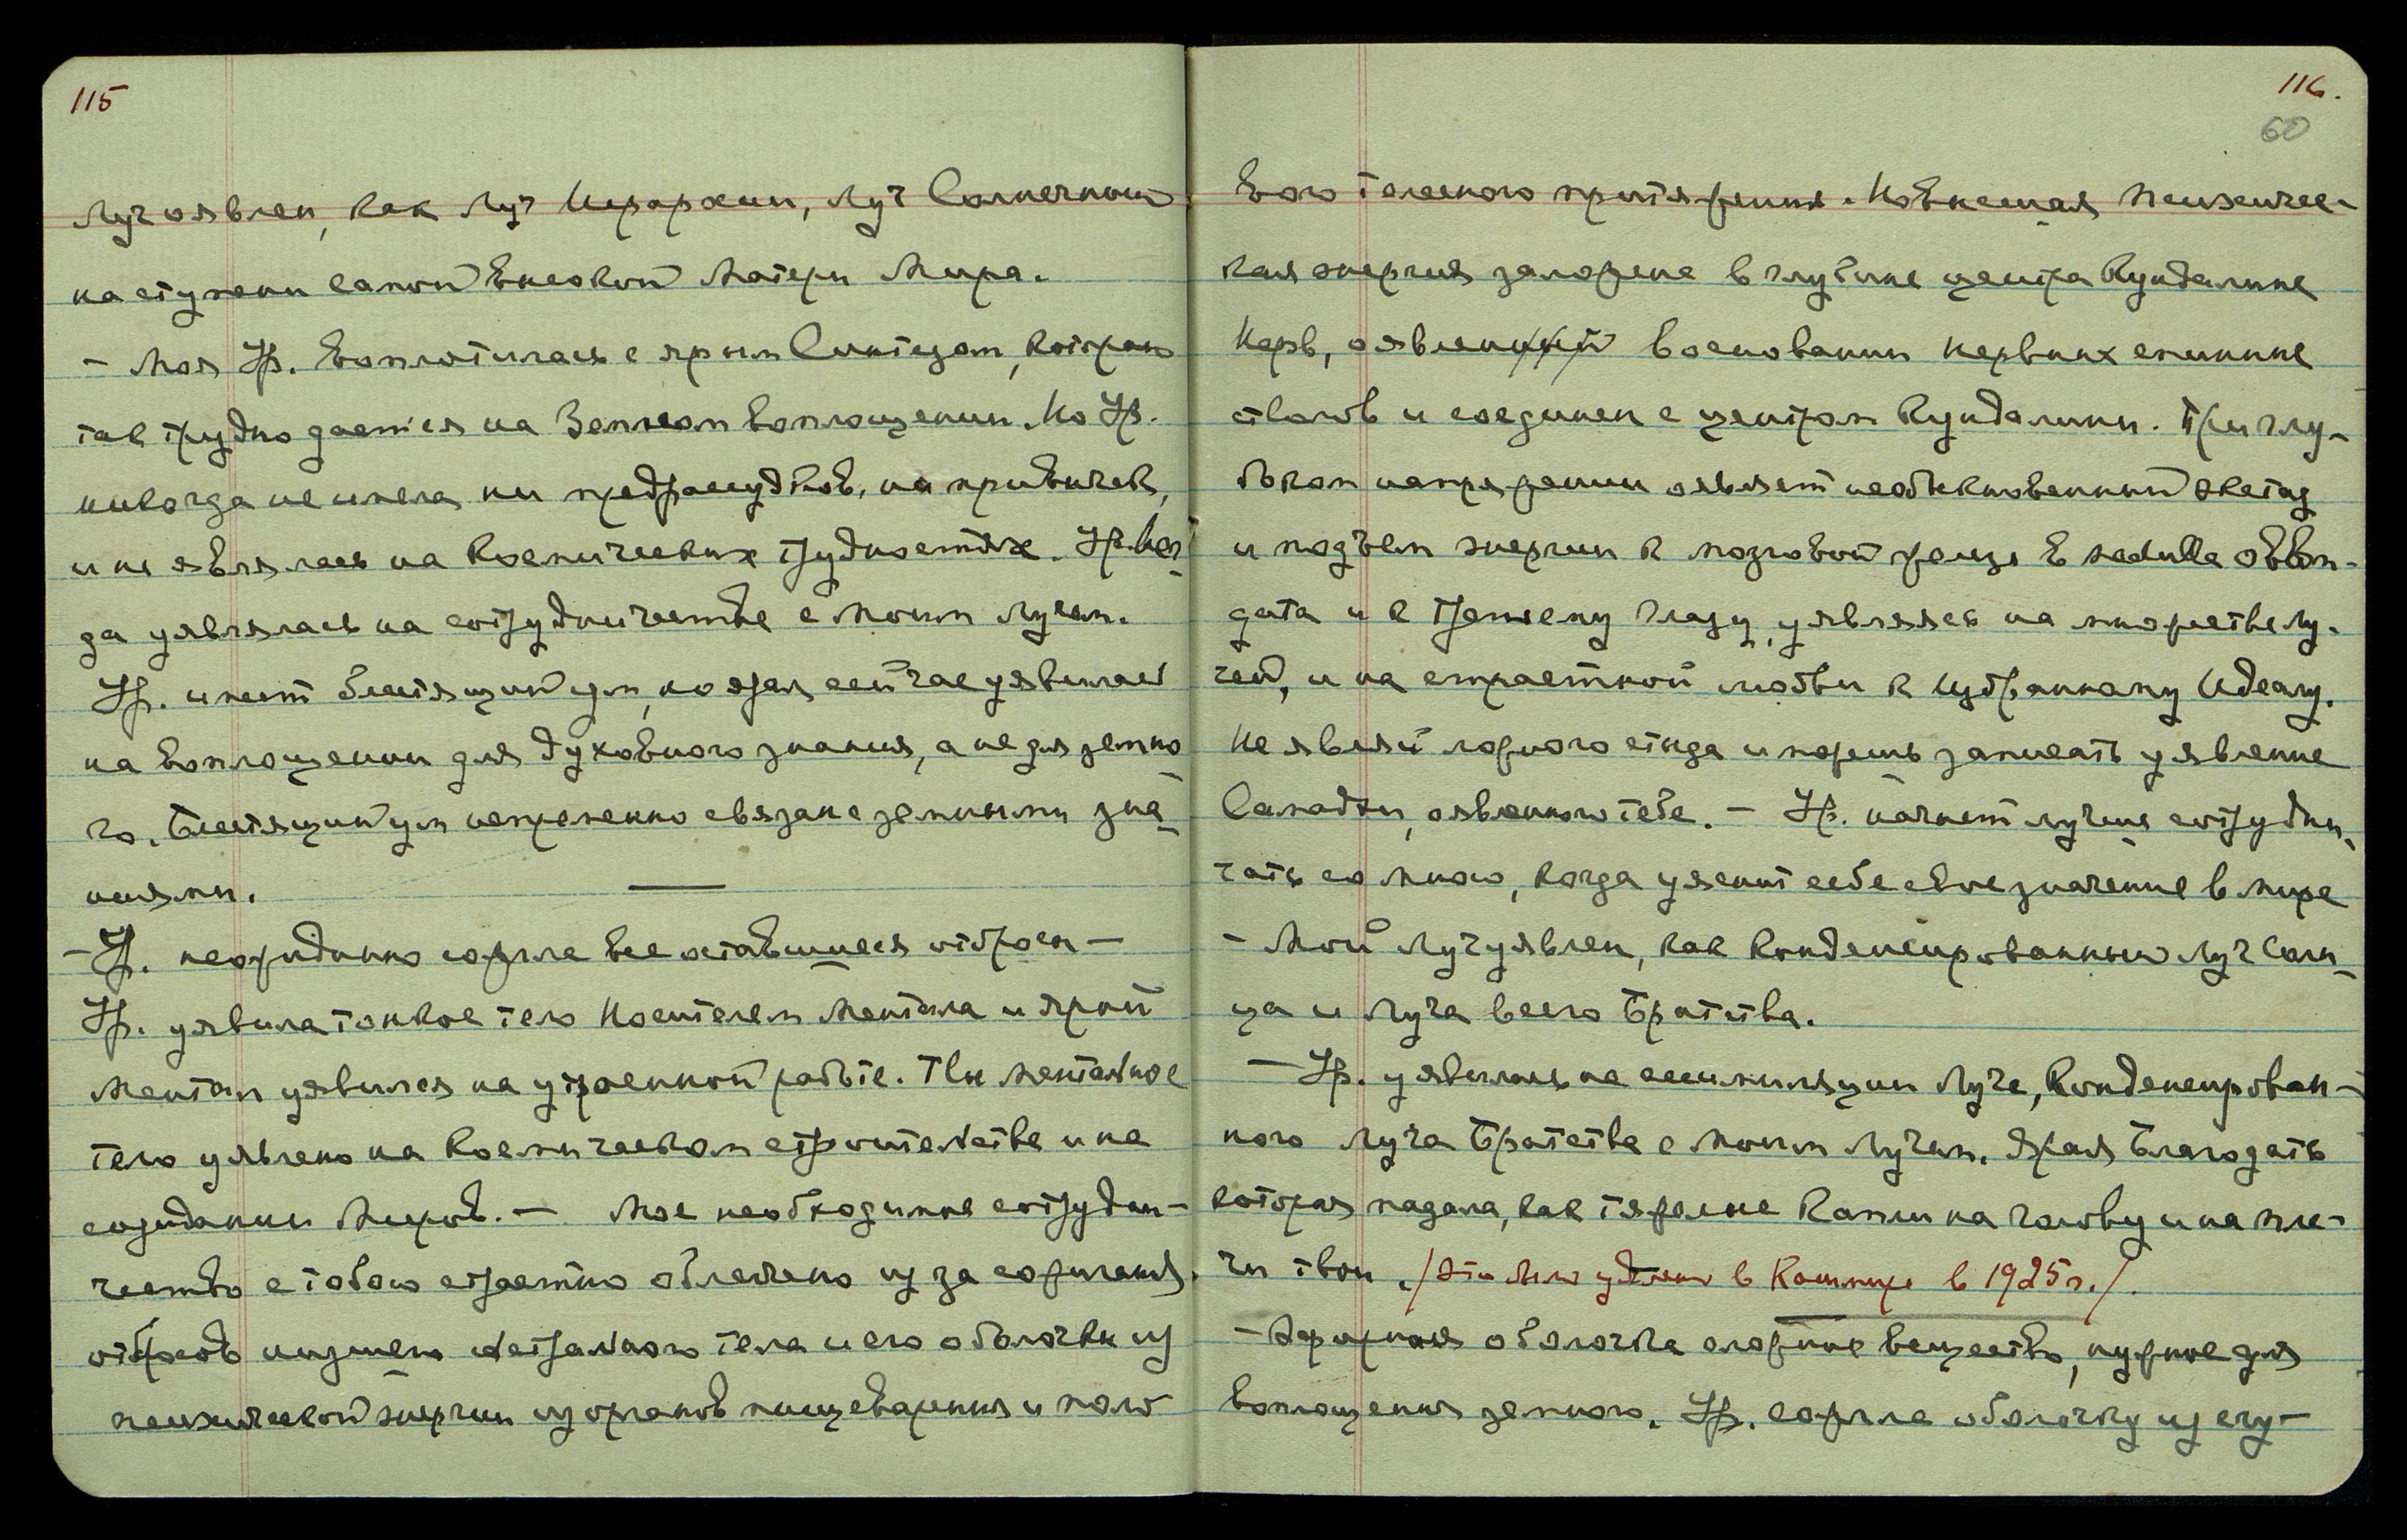 115
Луч оявлен, как Луч Иерархии, Луч Солнечный
на ступени самой Высокой Матери Мира.
— Моя Ур. воплотилась с ярым Синтезом, который
так трудно дается на Земном воплощении. Но Ур.
никогда не имела ни предрассудков, ни привычек,
и не являлась на космических трудностях. Ур. всег-
да уявлялась на сотрудничестве с Моим Лучем.
Ур. имеет блестящий ум, но ярая сейчас уявилась
на воплощении для духовного знания, а не для земно
го. Блестящий ум непременно связан с земными зна-
ниями.
— Ур. неожиданно сожгла все оставшиеся отбросы —
Ур. уявила тонкое тело Носителем Ментала и ярый
Ментал уявился на утроенной работе. Твое ментальное
тело уявлено на космическом строительстве и на
созидании Миров. — Мое необходимое сотрудни-
чество с тобою страстно облегчено из за сожигания
отбросов низшего астрального тела и его оболочки из
психической энергии из органов пищеварения и поло
116.
60
вого телесного притяжения. Новысшая психичес-
кая энергия заложена в глубине центра Кундалини
Нерв, оявленный в основании нервных спинных
стволов и соединен с центром Кундалини. При глу-
боком напряжении оявляет необыкновенный экстаз
и подъем энергии к мозговой железе в medulla облон-
гата и к Третьему глазу, уявляясь на множестве Лу-
чей, и на страстной любви к Избранному Идеалу.
Не являй ложного стыда и можешь записать уявление
Самадхи, оявленного тебе. — Ур. начнет лучше сотрудни-
чать со мною, когда уяснит себе свое значение в мире
— Мой Луч уявлен, как Конденсированный Луч Солн-
ца и Луча всего Братства.
— Ур. уявилась на ассимиляции Луча, Конденсирован-
ного Луча Братства с Моим Лучем. Ярая Благодать
которая падала, как тяжелые капли на голову и на пле-
чи твои. /Это было уявлено в Кашмире в 1925 г./.
— Эфирная оболочка сложное вещество, нужное для
воплощения земного. Ур. сожгла оболочку из сгу-